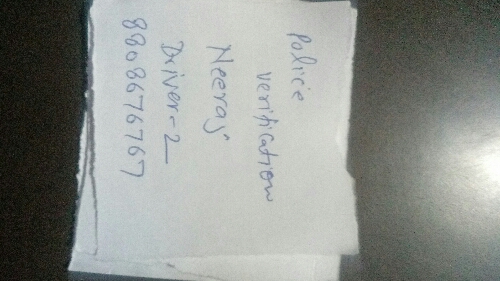 Policie
verification
Neeraj
Driver-2
8808676767